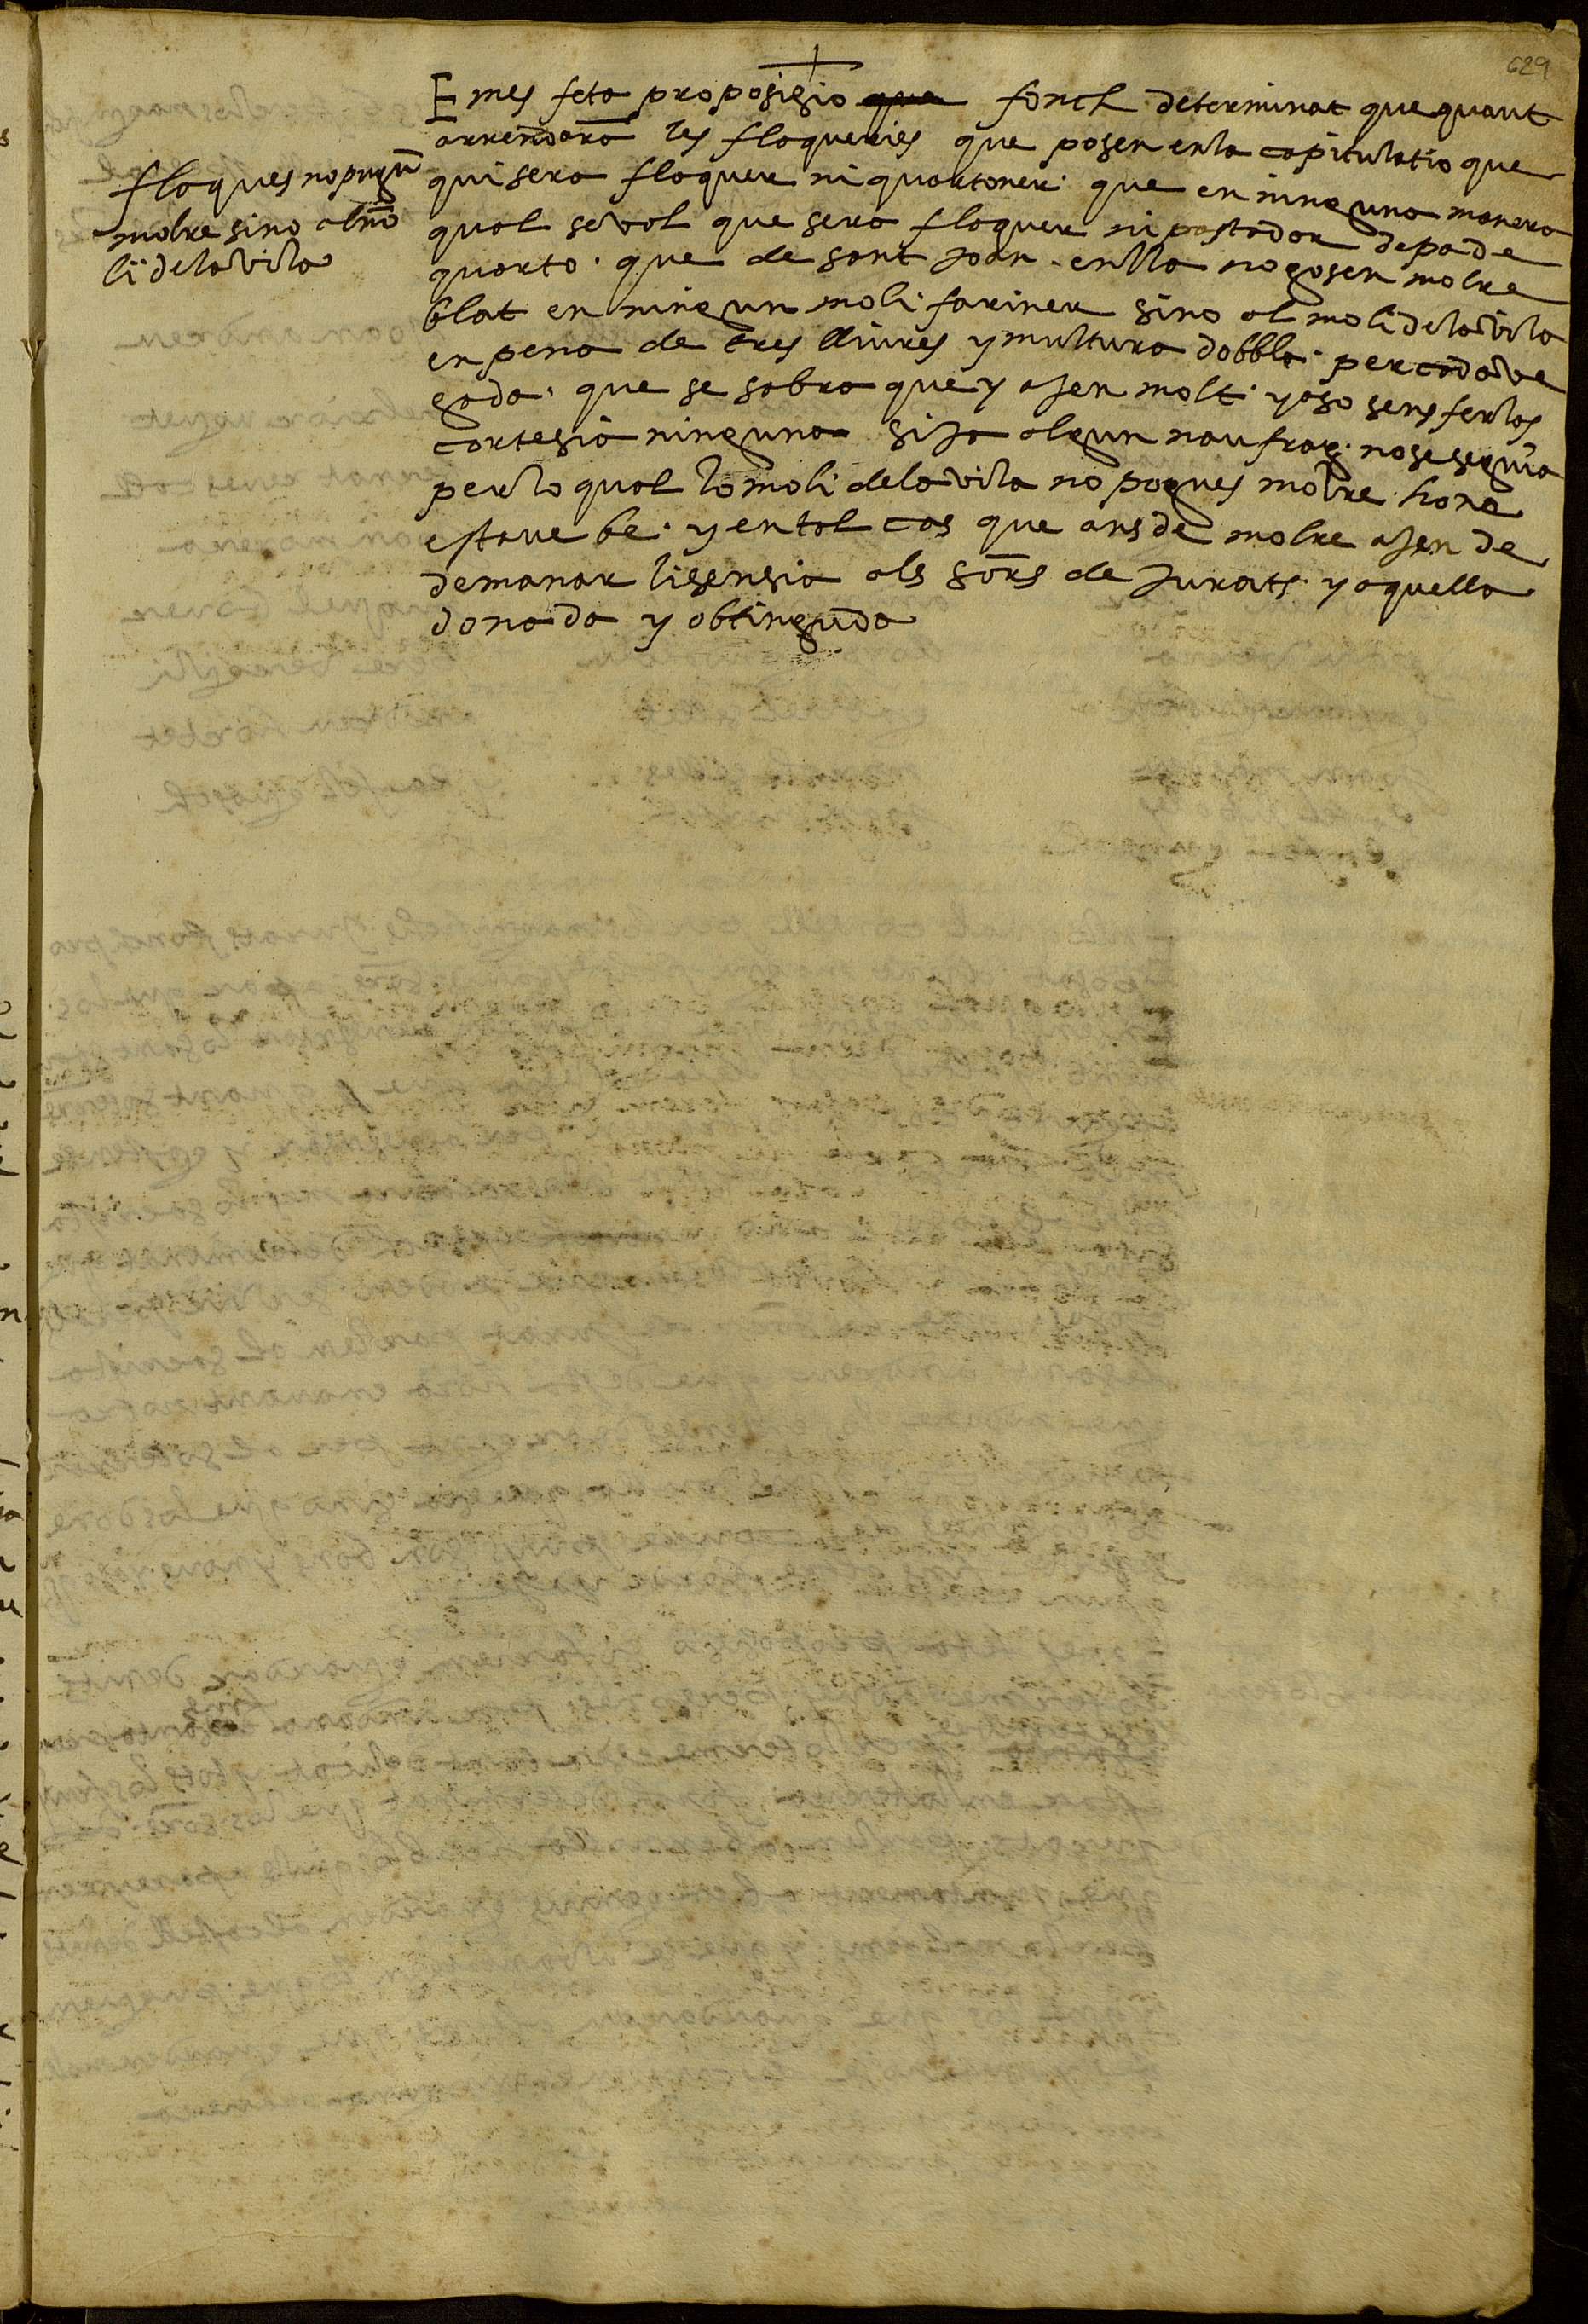 629
E mes feta proposisio que fonch determinat que quant
arrendara les flaqueries que posen en la capitulatio que
qui sera flaquer ni quartoner que en ninguna manera
qual sevol que sera flaquer ni pastador de pa de
quarto que de sant Joan en lla no gosen molre
blat en ningun moli fariner sino al moli de la vila
en pena de tres lliures y multura dobbla per cada ve
gada que se sabra que y ajen molt y aso sens ferlos
cortesia ninguna si ja algun naufrag no se seguia
per lo qual lo moli de la vila no pogues molre hone
estave be y en tal cas que ans de molre ajen de
demanar lisensia als sors de Jurats y aquella
donada y obtinguda
flaques no pugū
molre sino al mo
li de la vila